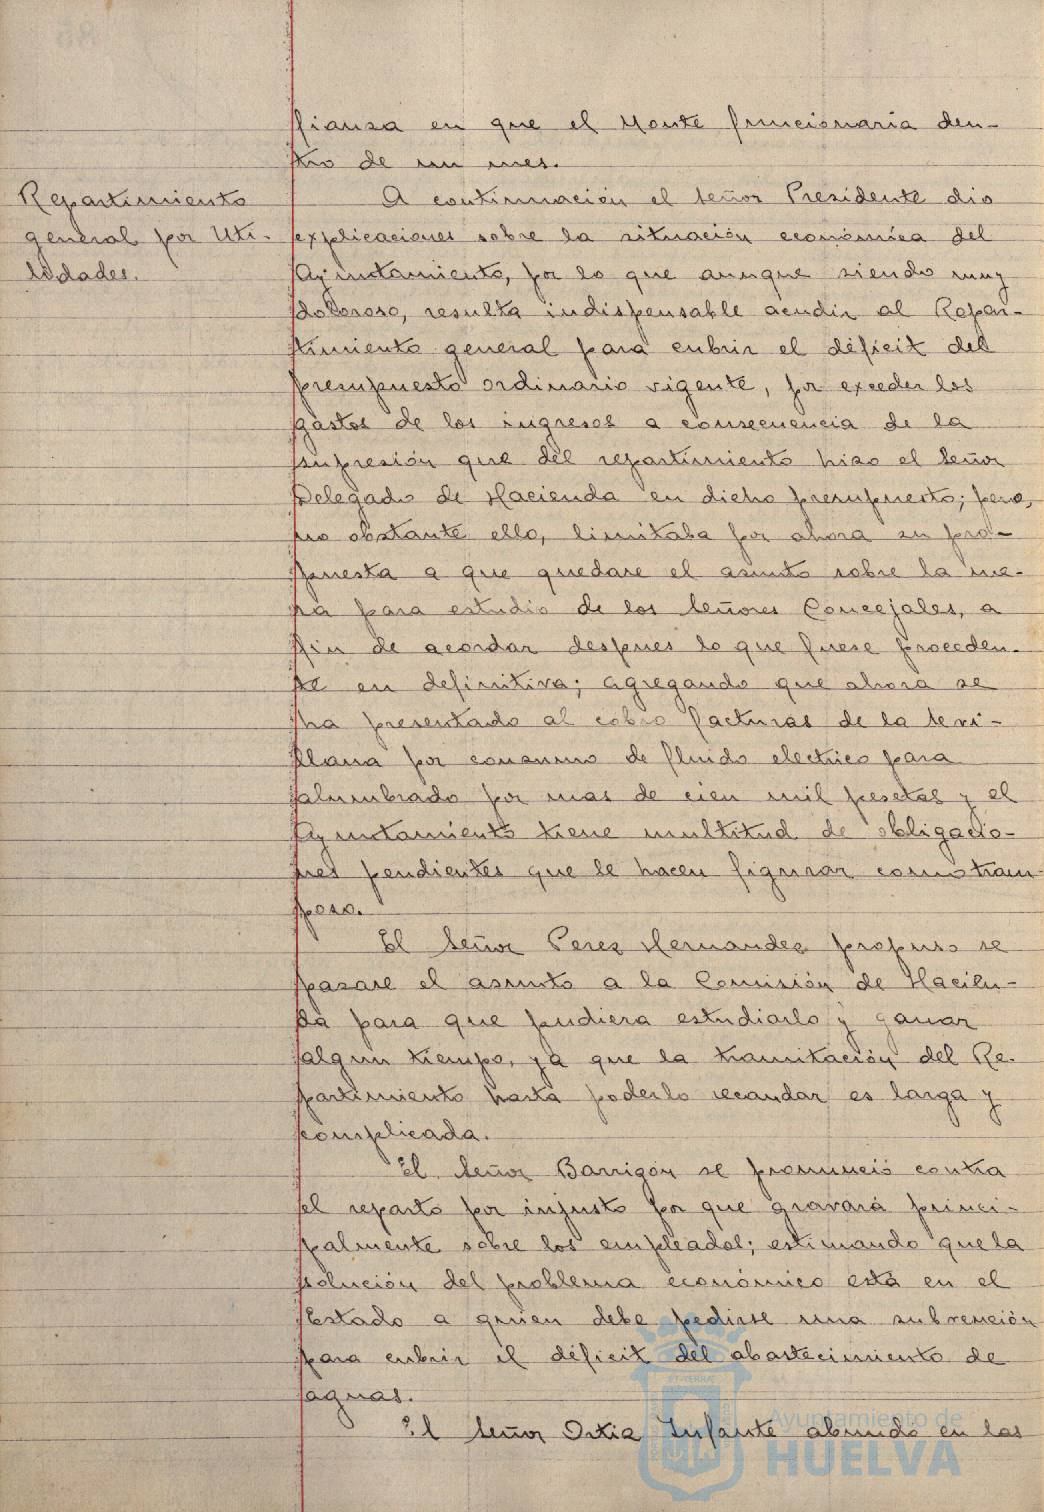 fianza en que el Monte funcionaria den-
tro de un mes.
Repartimiento
general por Uti-
lidades.
A continuación el Señor Presidente dio
explicaciones sobre la situación económica del
Ayuntamiento, por lo que aunque siendo muy
doloroso, resulta indispensable acudir al Repar-
timiento general para cubrir el déficit del
presupuesto ordinario vigente, por exceder los
gastos de los ingresos a consecuencia de la
supresión que del repartimiento hizo el Señor
Delegado de Hacienda en dicho presupuesto; pero,
no obstante ello, limitaba por ahora su pro-
puesta a que quedare el asunto sobre la me-
sa para estudio de los Señores Concejales, a
fin de acordar despues lo que fuese proceden-
te en definitiva; agregando que ahora se
ha presentado al cobro facturas de la Sevi-
llana por consumo de fluido electrico para
alumbrado por mas de cien mil pesetas y el
Ayuntamiento tiene multitud de obligacio-
nes pendientes que le hacen figurar como tram-
poso.
El Señor Perez Hernandez propuso se
pasase el asunto a la Comisión de Hacien-
da para que pudiera estudiarlo y ganar
algun tiempo, ya que la tramitación del Re-
partimiento hasta poderlo recaudar es larga y
complicada.
El Señor Barrigón se pronunció contra
el reparto por injusto por que gravará princi-
palmente sobre los empleados; estimando que la
solución del problema económico está en el
Estado a quien debe pedirse una subvención
para cubrir el déficit del abastecimiento de
aguas.
El Señor Ortiz Infante abundó en las
Ayuntamiento de
HUELVA